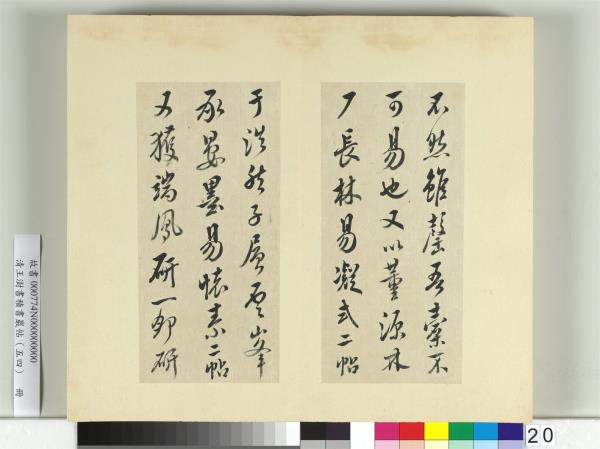 不然雖罄吾橐不
可易也又以董源
長林易凝式二帖
于洪子峯
承晏墨易懷素二帖
又獲端鳳研一即研
故書000774N000000000
清王澍書積書巖帖（五四） 冊
20